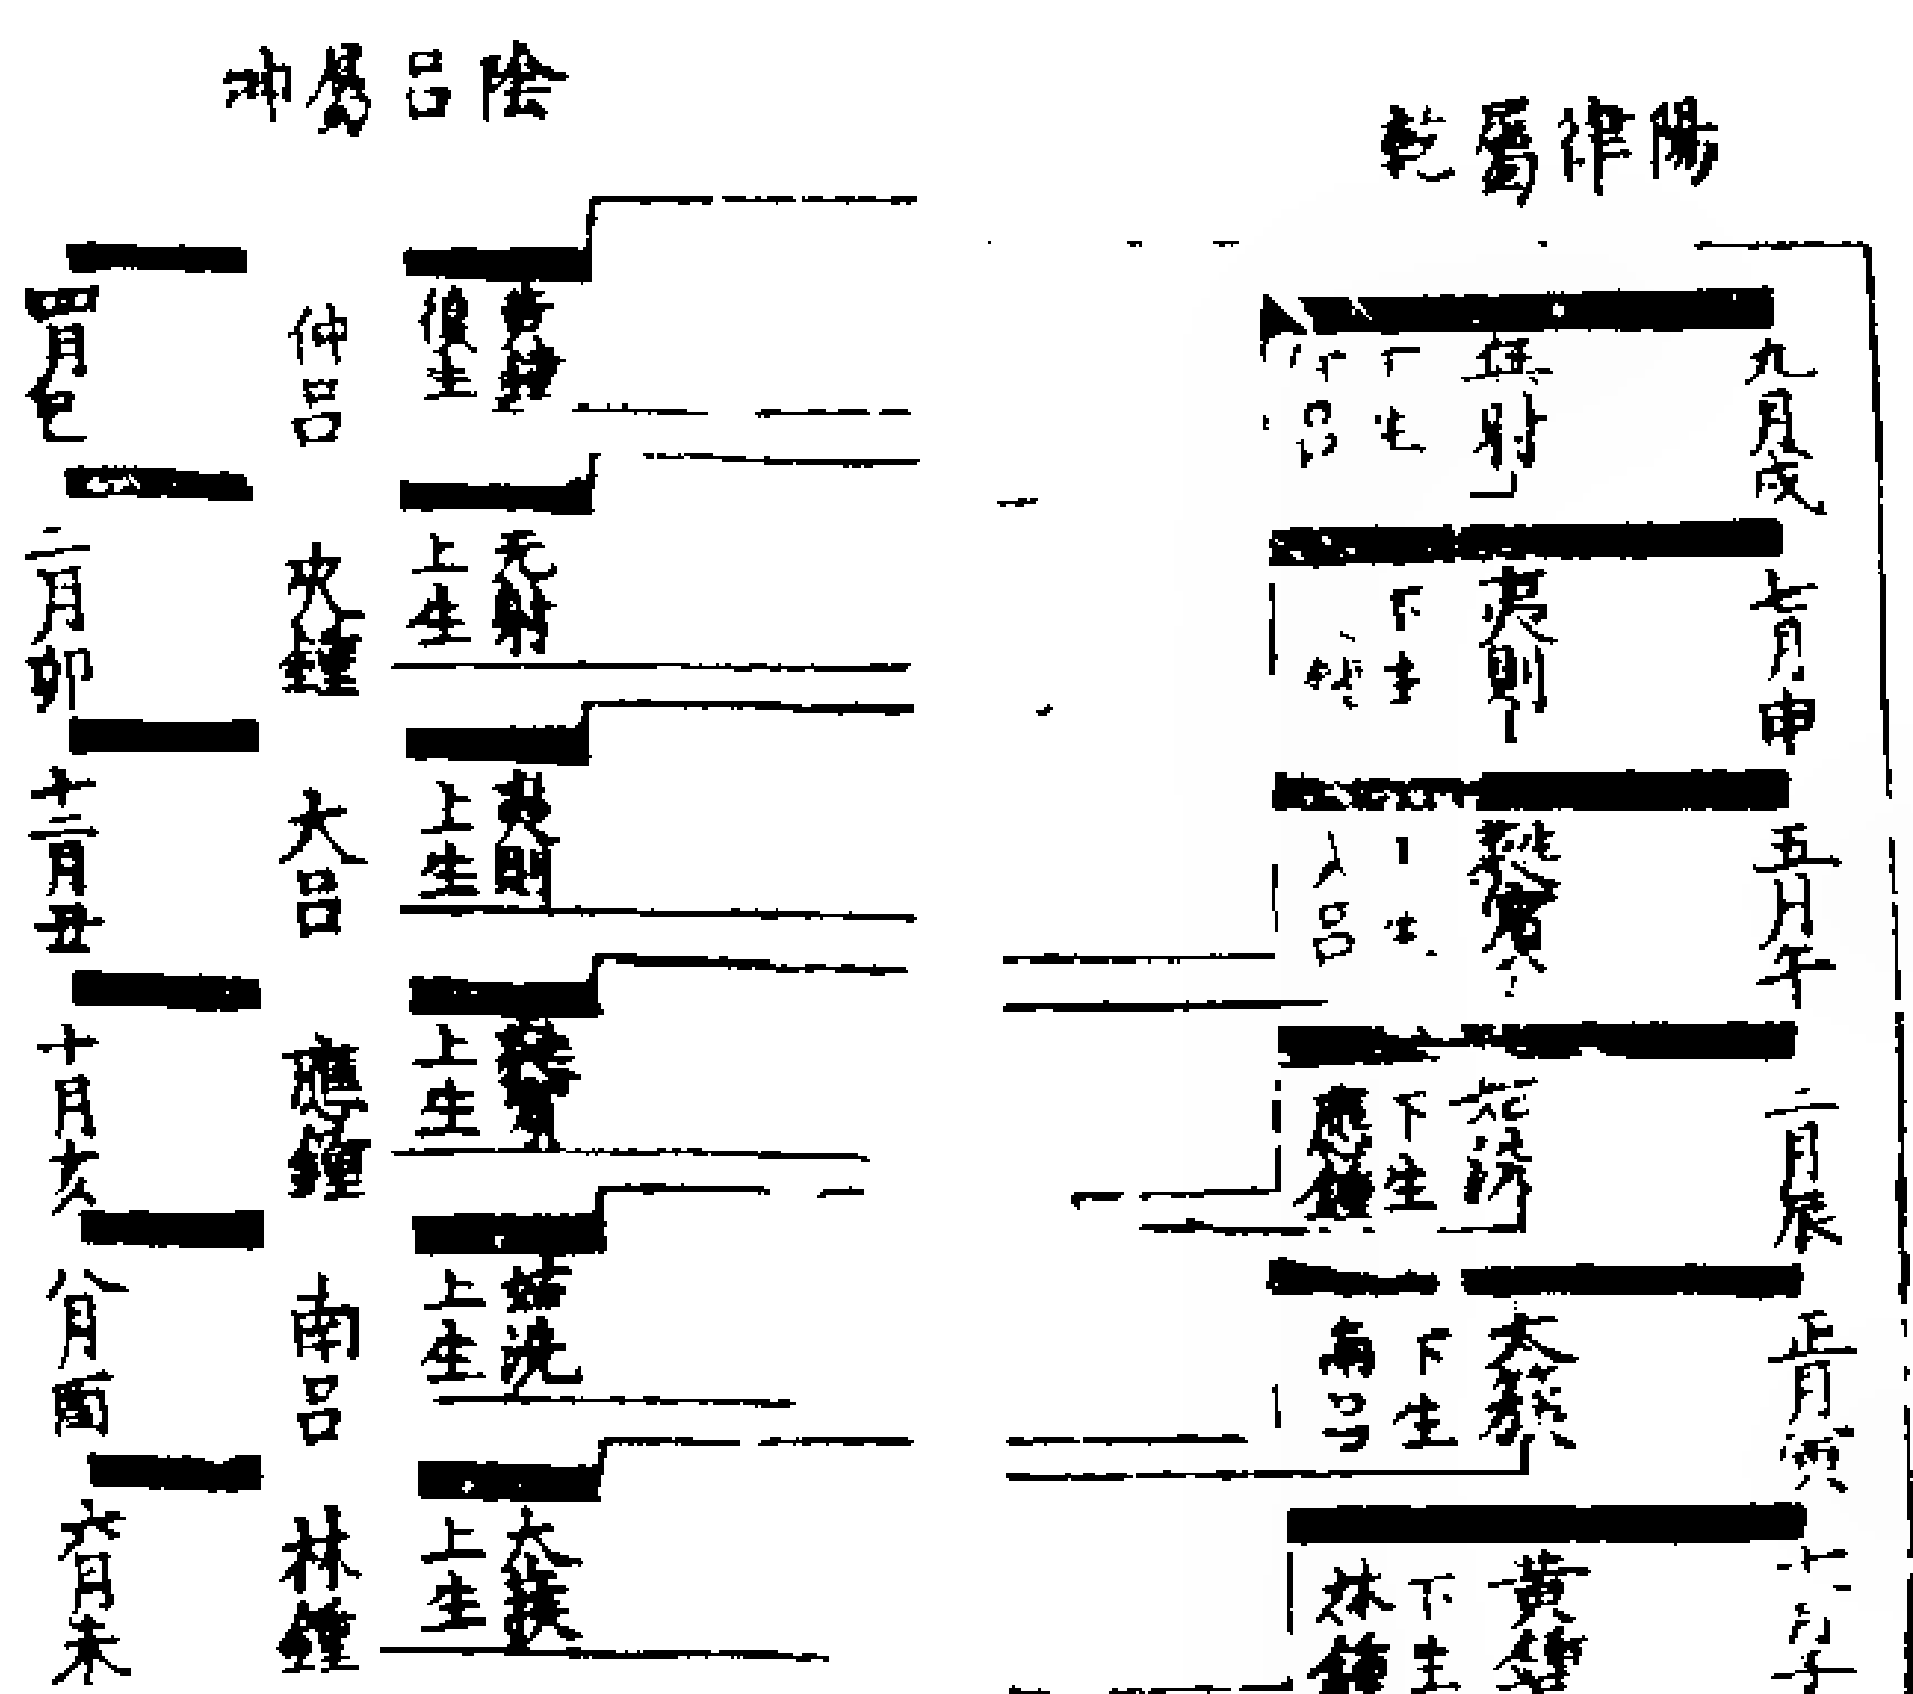 陽律屬乾
九月戌
無射
下生
仲呂
七月申
夷則
下生
五月午
蕤賓
下生
大呂
三月辰
姑洗
下生
應鍾
正月寅
太蔟
下生
南呂
十一月子
黃鍾
下生
林鍾
陰呂屬坤
黃鍾
復生
仲呂
四月巳
无射
上生
夾鍾
二月卯
夷則
上生
大呂
十二月丑
蕤賓
上生
應鍾
十月亥
姑洗
上生
南呂
八月酉
太蔟
上生
林鍾
六月未